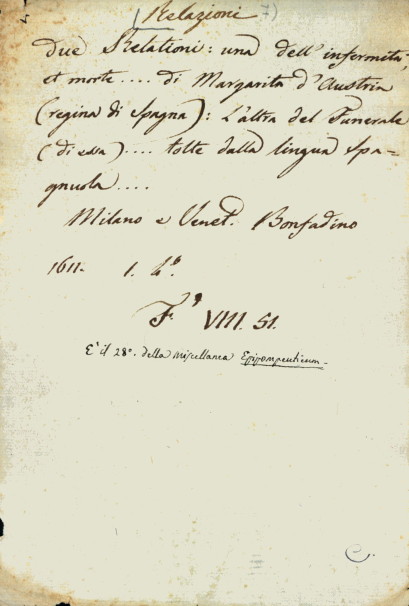 Relazioni
Due Relationi: una dell' infermità,
et morte .... di Margarita d'Austria
(regina di Spagna): L'altra del Funerale
(di essa) .... tolte dalla lingua Spa=
gnuola ....
Milano e Venet. Bonfadino
1611. 1. 4°.
F. VIII. 51.
E' il 28°. della miscellanea Epipompeuticum.
C.